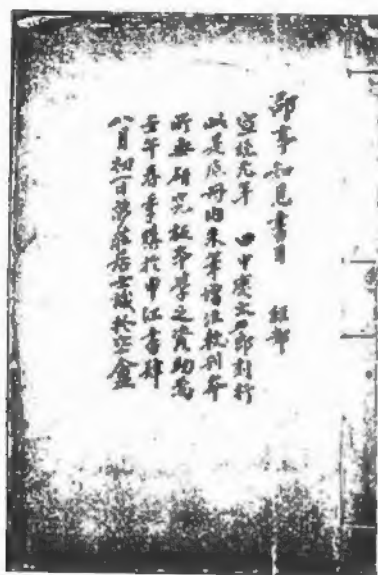 郘亭知見書目 經部
宣統元年 田中慶太郎刊行
此是底冊由朱筆增注較刊本
所無研究板本學之資助焉
壬午春季購於申江書肆
八月初一日夢莊居士識於空盦